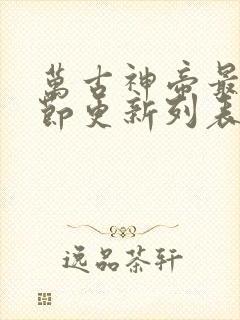 萬古神帝最
節更新列表
逸品茶轩